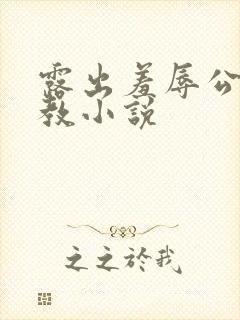 露出羞辱公
教小说
之之於我